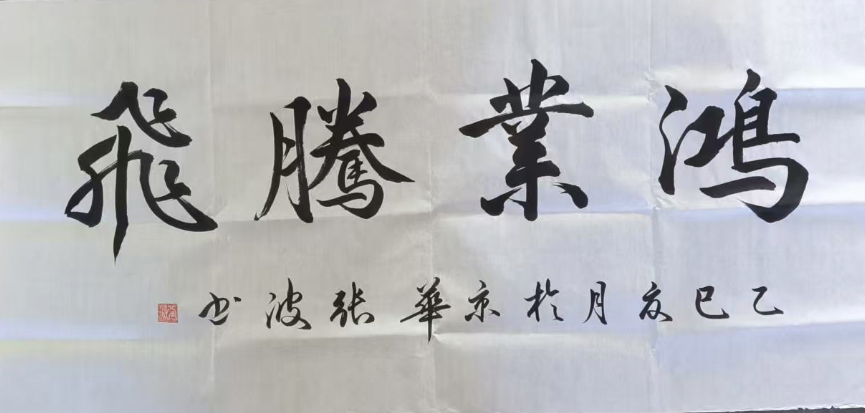 鴻業騰飛
乙巳夏月於京華張波书